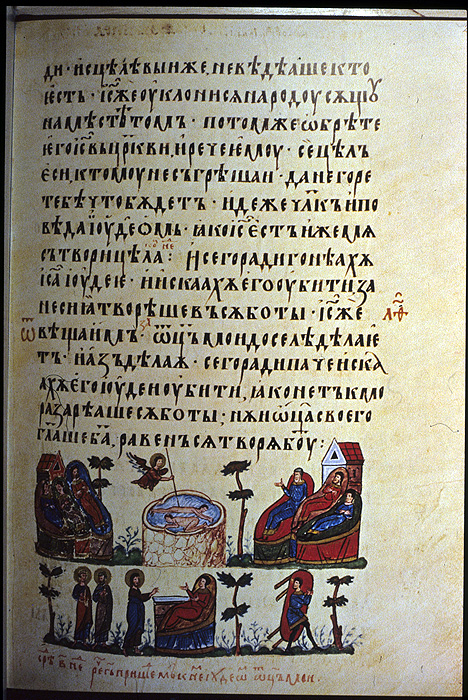 ди· исцѣлѣвыиже, невѣдѣаше кто
ѥсть· і҃с же оуклонисѧ народоу сѫщоу
на мѣстѣ томъ· потомже ѡбрѣте
ѥго і҃с въ цр҃кви, и рече ѥмоу· се цѣлъ
ѥси ктомоу не съгрѣшаи· да не горе
тебѣ что бѫдетъ· Иде же чл҃къ и по
вѣда іоудеѡмъ· ꙗко і҃с ѥстъ иже мѧ
сътвори цѣла: И сего ради гонѣахѫ
іс҃а іоудеіе· и искаахѫ его оубити за
не сиа творѣше въ сѫботы· і҃с же
ѿвѣща имъ· ѿц҃ъ мои доселѣ дѣлаѥ
тъ· и азъ дѣлаѫ· сего ради паче иска
ахѫ его іоудеи оубити, ꙗко не тъкмо
разарѣаше сѫботы; нѫ и ѡц҃а своего
гл҃аше б҃а, равенъ сѧ творѧ б҃оу: